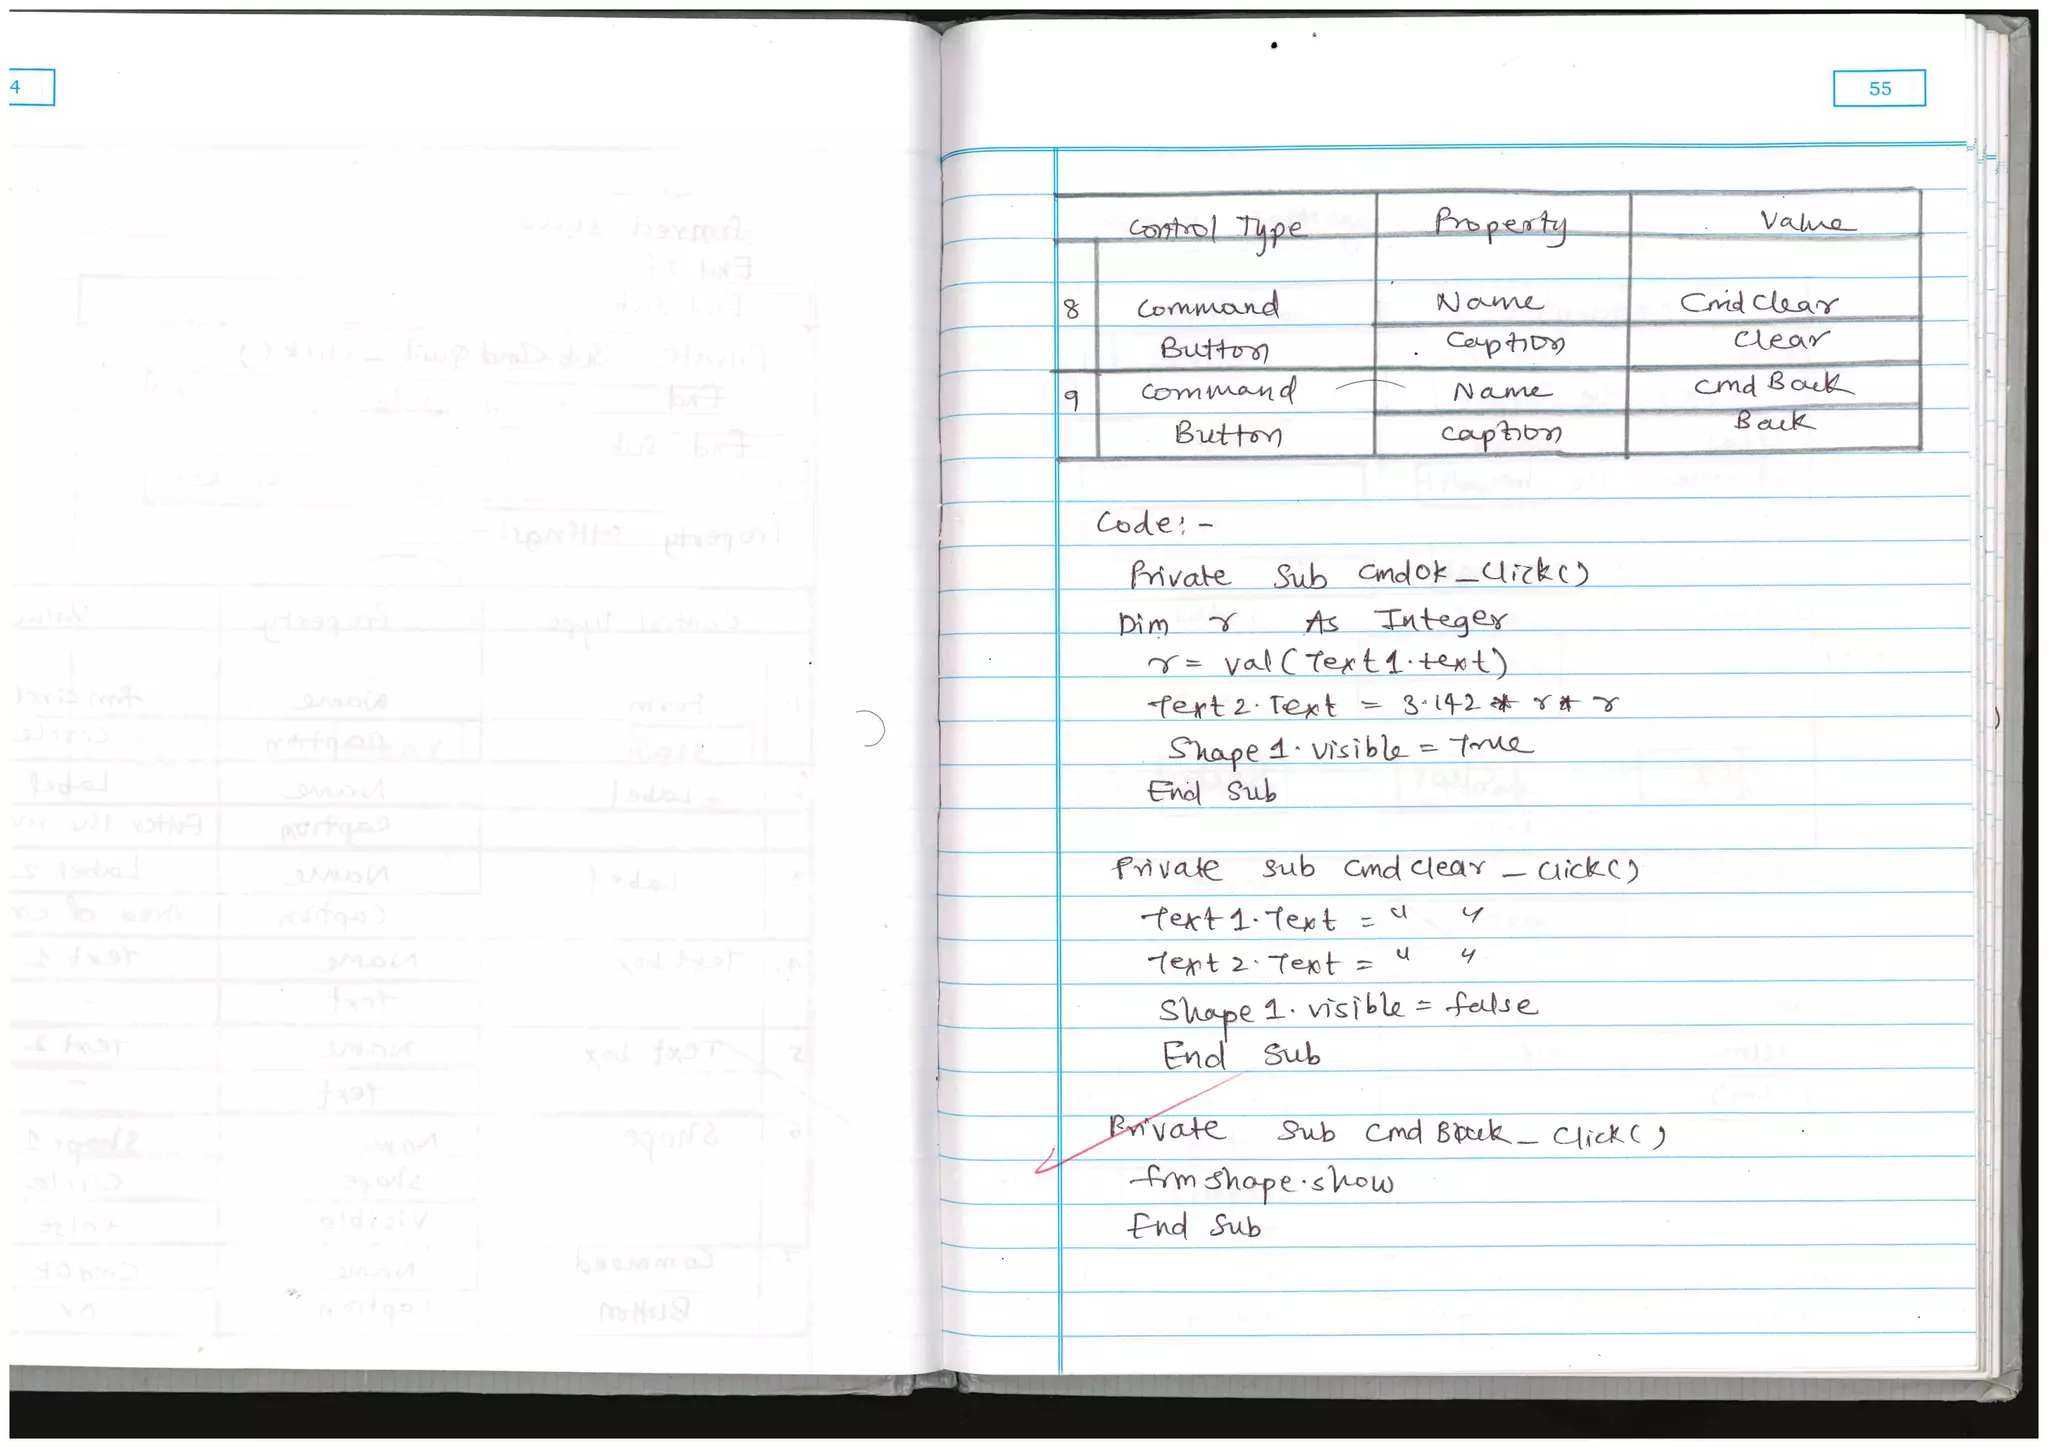 4
55
Control Type Property Value
8 Command Name Cmd Clear
Button Caption Clear
9 Command Name cmd Back
Button Caption Back
Code:-
Private Sub CmdOk_Click()
Dim r As Integer
r = val(Text1.text)
Text2.Text = 3.142 * r * r
Shape1.visible = True
End Sub
Private Sub Cmd clear_Click()
Text1.Text = " "
Text2.Text = " "
Shape1.visible = false
End Sub
Private Sub Cmd Back_Click()
frmshape.show
End Sub